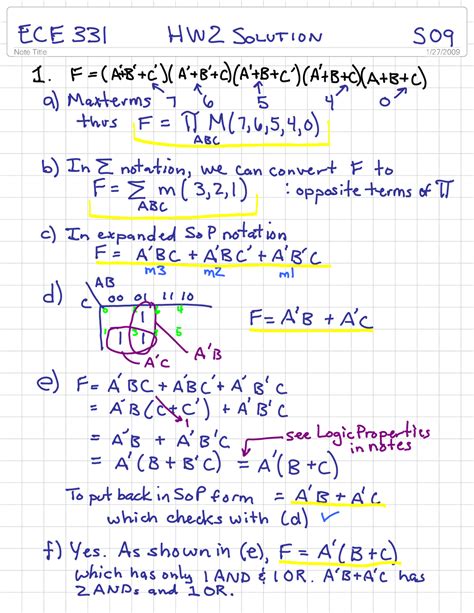 ECE 331 HW2 SOLUTION S09
Note Title 1/27/2009
1. F=(A'+B'+C')(A'+B'+C)(A'+B+C')(A'+B+C)(A+B+C)
a) Maxterms 7 6 5 4 0
thus F = Π M(7,6,5,4,0)
ABC
b) In Σ notation, we can convert F to
F= Σ m(3,2,1) : opposite terms of Π
ABC
c) In expanded SoP notation
F = A'BC + A'BC' + A'B'C
m3 m2 m1
d) AB
C 00 01 11 10
1 4
1 1 5
F=A'B + A'C
A'B
A'C
e) F= A'BC + A'BC' + A'B'C
= A'B(C+C') + A'B'C
1
= A'B + A'B'C
see Logic Properties
in notes
= A'(B+B'C) = A'(B+C)
To put back in SoP form = A'B + A'C
which checks with (d) ✓
f) Yes. As shown in (e), F = A'(B+C)
which has only 1 AND & 1 OR. A'B+A'C has
2 ANDs and 1 OR.